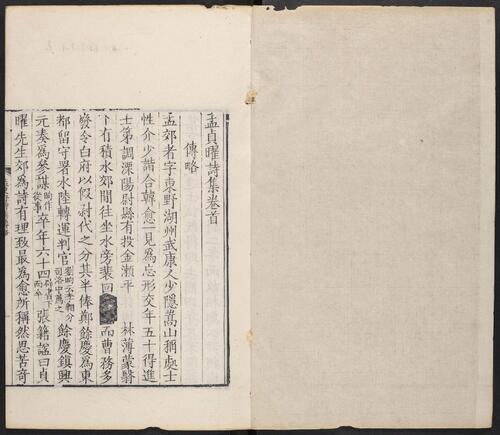 孟貞曜詩集卷首
傳略
孟郊者字東野湖州武康人少隱嵩山稱處士
性介少諧合韓愈一見為忘形交年五十得進
士第調溧陽尉縣有投金瀨平 林薄蒙翳
下有積水郊閒往坐水旁裴回 而曹務多
廢令白府以假尉代之分其半俸鄭餘慶為東
都留守署水陸轉運判官 餘慶鎮興
元奏為參謀 卒年六十四 張籍諡曰貞
曜先生郊為詩有理致最為愈所稱然思苦奇